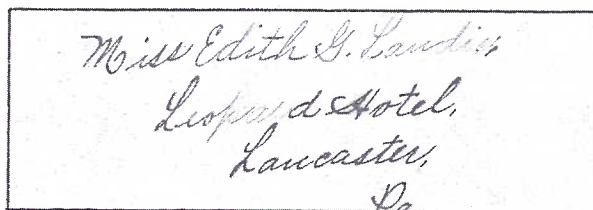 Miss Edith G. Landis,
Leopard Hotel,
Lancaster,
Pa